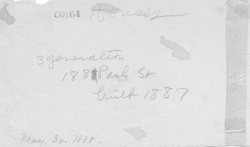 CO164 House
3 generation
1881 Park St
built 1887
May 30. 1918.